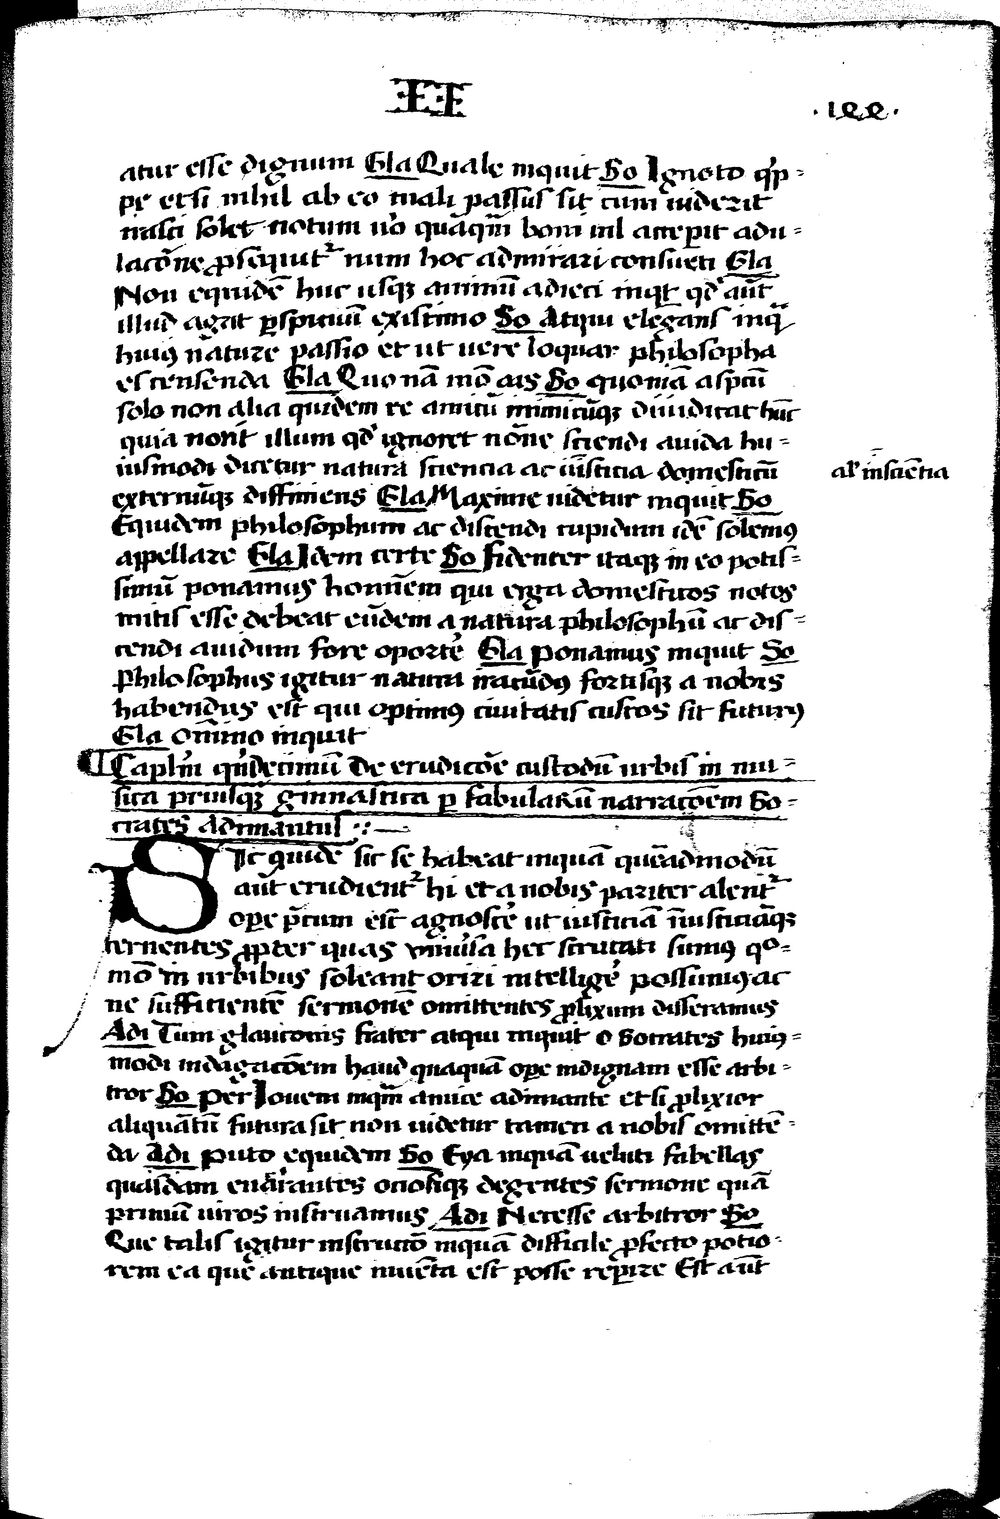 II
·122·
atur esse dignum Gla Quale inquit So Ignoto q̓p-
pe etsi nihil ab eo mali passus sit cum uiderit
irasci solet notum u̓o quāq̄m boni nil acceperit adu-
lacōne ꝓsequit᷑ num hoc admirari consueti Gla
Non equidē huc usqꝫ animū adieci inq̄t qd̓ aūt
illud agat ꝑspicuū existimo So Atqui elegans inq̄
huiꝯ nature passio et ut uere loquar philosopha
es censenda Gla Quo nā mō ais So quoniā aspcū
solo non alia quidem re amicū inimicūqꝫ diiudicat hūc
quia norit illum qd̓ ignoret nōne sciendi auida hu-
iusmodi dicetur natura sciencia ac iūsticia domesticū
al̓ inscientia
externūqꝫ diffiniens Gla Maxime uidetur inquit So
Equidem philosophum ac discendi cupidum idē solemꝯ
appellare Gla Idem certe So fidenter itaqꝫ in eo potis-
simū ponamus hominēm qui erga domesticos notos
mitis esse debeat eūdem a natura philosophū ac dis-
cendi auidum fore oporte̓ Gla ponamus inquit So
Philosophus igitur natura iracūdꝯ fortisqꝫ a nobis
habendus est qui optimꝯ ciuitatis custos sit futurꝯ
Gla Omīno inquit
Capl̓m qn̓decimū De erudicōe custodū urbis in mu-
sica priusqꝫ gimnastica ꝑ fabularū narracōem So-
crates Adimantus
Sic quidē sic se habeat inquā quēadmodū
aūt erudient᷑ hi et a nobis pariter alent᷑
oꝑe p̄cium est agnosce̓ ut iusticiā īiusticiāqꝫ
cernentes ꝓpter quas uniūsa hec scrutati sumꝯ qo-
mō in urbibus soleant oriri intellige̓ possimꝯ ac
ne sufficientē sermonē omittentes ꝓlixum disseramus
Adi Tum glauconis frater atqui inquit o Socrates huiꝯ-
modi indagacōem haud quaquā oꝑe indignam esse arbi-
tror So per Iouem inq̄m amice adimante etsi ꝓlixior
aliquātū futura sit non uidetur tamen a nobis omittē-
da Adi puto equidem So Eya inquā ueluti fabellas
quasdam enarrantes ociosiqꝫ degentes sermone quā
primū uiros instruamus Adi Necesse arbitror So
Que talis igitur instructō inquā difficile ꝓfecto potio-
rem ea que antique inuēta est posse reꝑire Est aūt